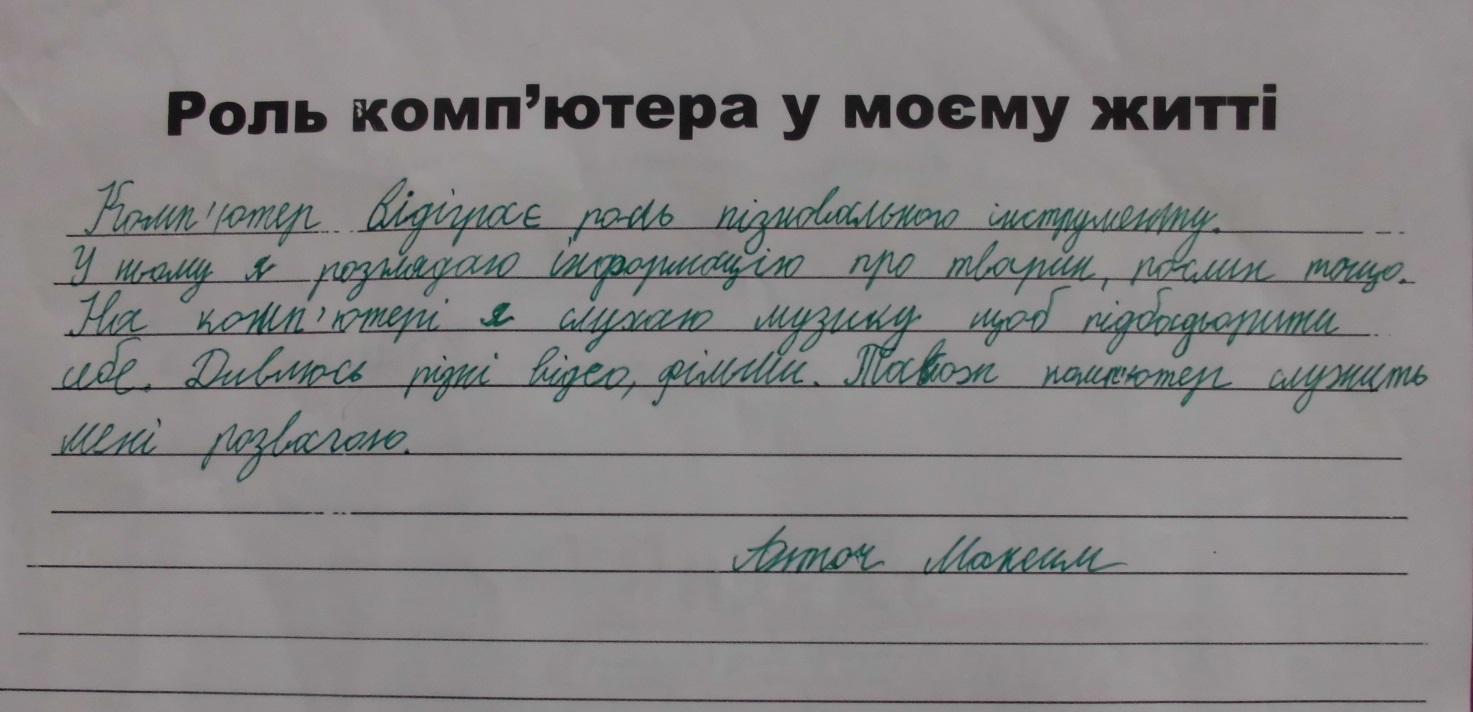 Роль комп’ютера у моєму житті
Комп'ютер відіграє роль пізнавального інструменту.
У ньому я розглядаю інформацію про тварин, рослин тощо.
На комп'ютері я слухаю музику щоб підбадьорити
себе. Дивлюсь різні відео, фільми. Також комп'ютер служить
мені розвагою.
Максим